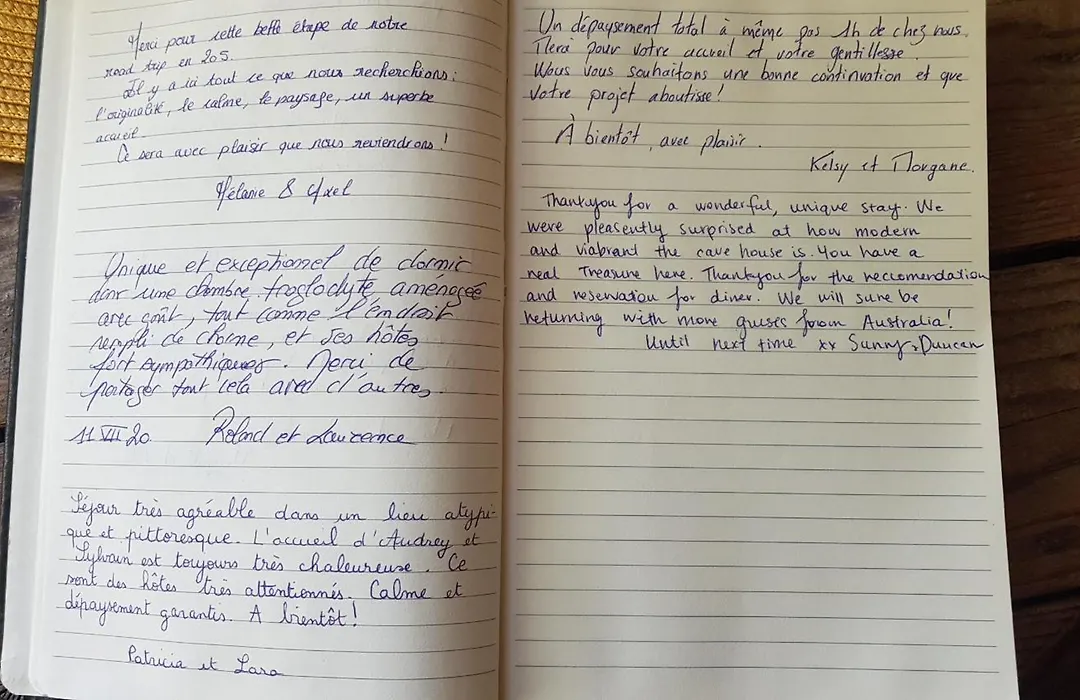 Merci pour cette belle étape de notre
road trip en 205.
Il y a ici tout ce que nous recherchions :
l'originalité, le calme, le paysage, un superbe
accueil.
Ce sera avec plaisir que nous reviendrons !
Mélanie & Axel
Unique et exceptionnel de dormir
dans une chambre troglodyte aménagée
avec goût, tout comme l'endroit
rempli de charme, et ses hôtes
fort sympathiques. Merci de
partager tout cela avec d'autres.
11 VII 20. Roland et Laurence
Séjour très agréable dans un lieu atypi-
que et pittoresque. L'accueil d'Audrey et
Sylvain est toujours très chaleureuse. Ce
sont des hôtes très attentionnés. Calme et
dépaysement garantis. A bientôt !
Patricia et Lara
Un dépaysement total à même pas 1h de chez nous.
Merci pour votre accueil et votre gentillesse.
Nous vous souhaitons une bonne continuation et que
votre projet aboutisse !
À bientôt, avec plaisir.
Kelsy et Morgane.
Thankyou for a wonderful, unique stay. We
were pleasently surprised at how modern
and viabrant the cave house is. You have a
real Treasure here. Thankyou for the reccomendation
and reservation for diner. We will sure be
returning with more guises from Australia!
Until next time xx Sunny & Duncan